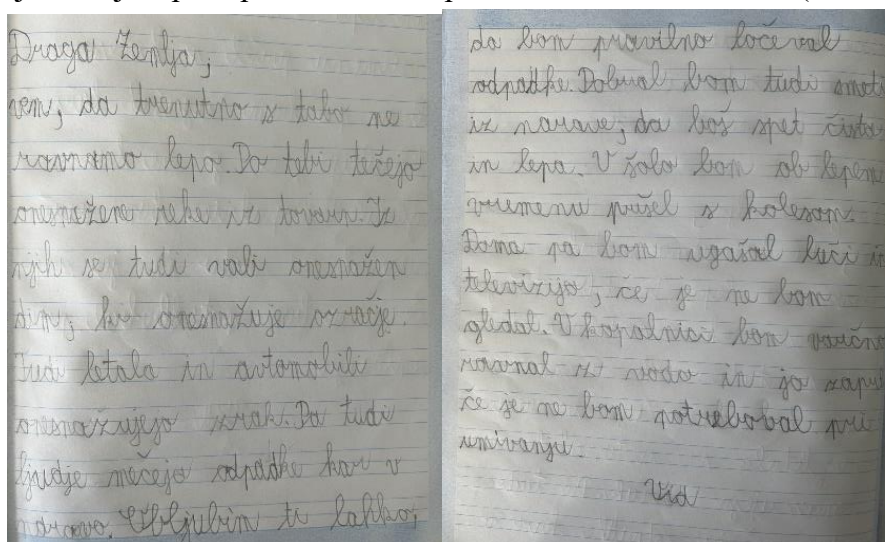 Draga Zemlja,
vem, da trenutno s tabo ne
ravnamo lepo. Po tebi tečejo
onesnažene reke iz tovarn. Iz
njih se tudi vali onesnažen
dim, ki onesnažuje ozračje.
Tudi letala in avtomobili
onesnažujejo zrak. Pa tudi
ljudje mečejo odpadke kar v
naravo. Obljubim ti lahko,
da bom pravilno ločeval
odpadke. Pobiral bom tudi smeti
iz narave, da boš spet čista
in lepa. V šolo bom ob lepem
vremenu prišel s kolesom.
Doma pa bom ugašal luči in
televizijo, če je ne bom
gledal. V kopalnici bom varčno
ravnal z vodo in jo zaprl
če je ne bom potreboval pri
umivanju.
Vid